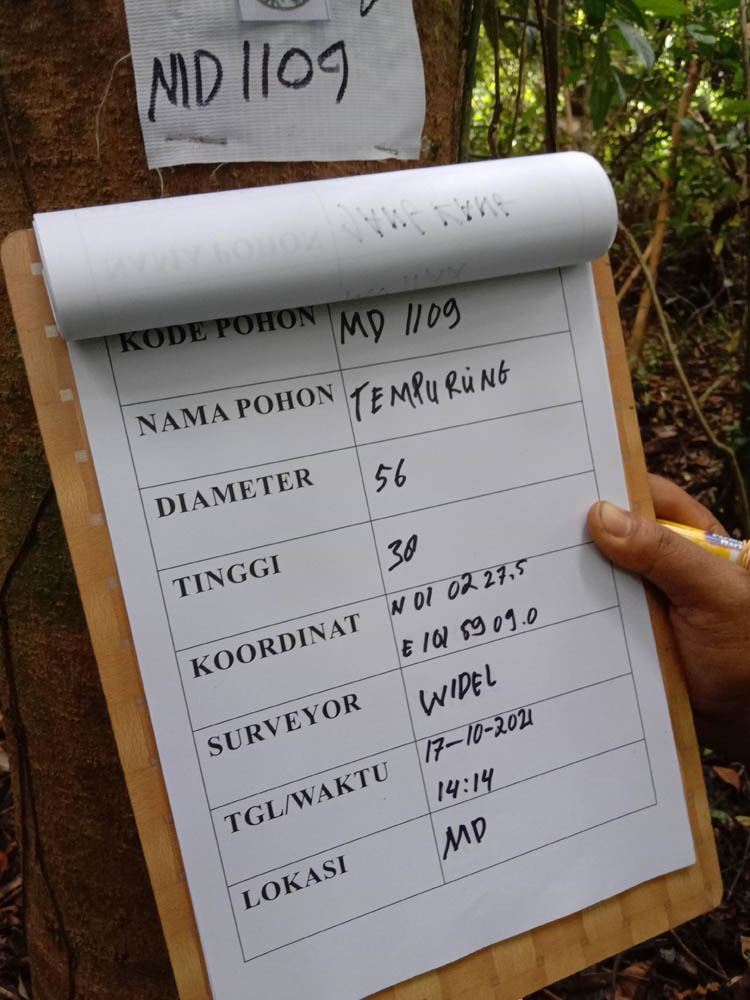 MD 1109
KODE POHON MD 1109
NAMA POHON TEMPURUNG
DIAMETER 56
TINGGI 30
KOORDINAT N 01 02 27,5
E 101 59 09.0
SURVEYOR WIDEL
TGL/WAKTU 17-10-2021
14:14
LOKASI MD